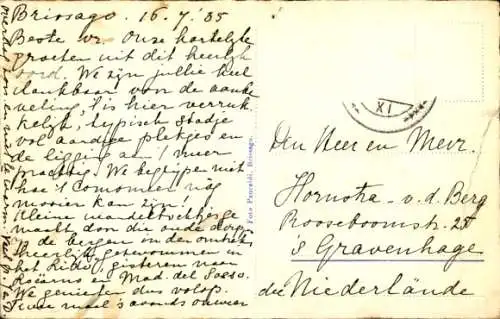 Brissago. 16.7.'35
Beste vr. Onze hartelyke
groeten uit dit heerlyk
oord. We zijn jullie heel
dankbaar voor de aanbe
veling, 't is hier verruk
kelyk, typisch stadje
vol aardige plekjes en
de ligging aan 't meer
prachtig. We begrijpen niet
hoe 't Comomeer nog
mooier kan zijn!
Kleine wandeltochtjes ge
maakt door die oude dorpjes
de bergen in den omtrek
heerlyk gezwommen in
het Lido, gisteren naar
Locarno en Mad. del Sasso.
We genieten dus volop.
's avonds onweer
Foto Pancaldi, Brissago.
XI
Den Heer en Mevr.
Hornstra - v.d. Berg
Rooseboomstr. 25
's Gravenhage
die Niederlände